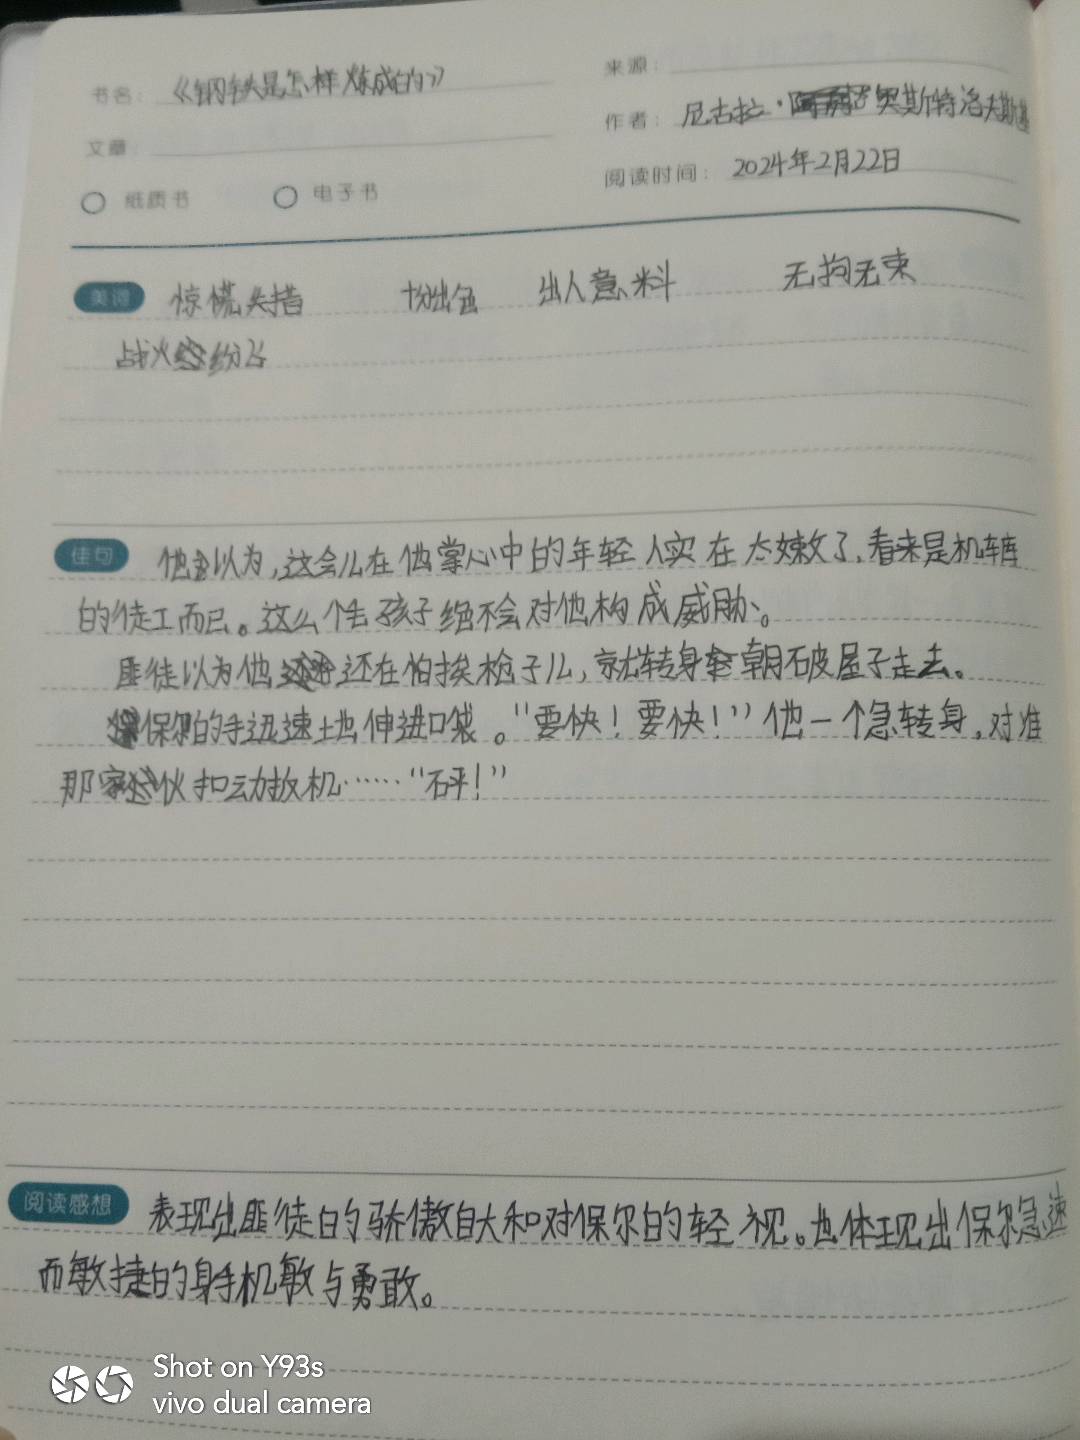 书名：《钢铁是怎样炼成的》
来源：
作者：尼古拉·奥斯特洛夫斯基
文章
阅读时间：2024年2月22日
纸质书 电子书
美词 惊慌失措 出色 出人意料 无拘无束
战火纷飞
佳句 他以为，这会儿在他掌心中的年轻人实在太嫩了，看来是机车库
的徒工而已。这么个毛孩子绝不会对他构成威胁。
匪徒以为他还在怕挨枪子儿，就转身朝破屋子走去。
保尔的手迅速地伸进口袋。“要快！要快！”他一个急转身，对准
那家伙扣动扳机……“砰！”
阅读感想 表现出匪徒的骄傲自大和对保尔的轻视。也体现出保尔急速
而敏捷的身手机敏与勇敢。
Shot on Y93s
vivo dual camera